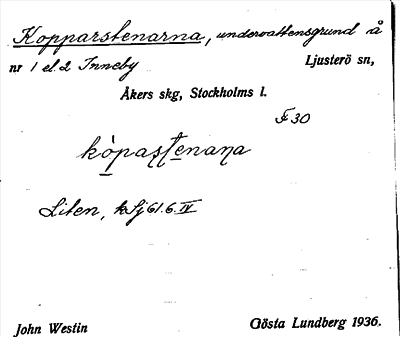 Kopparstenarna, undervattensgrund å
nr 1 el. 2 Inneby Ljusterö sn,
Åkers skg, Stockholms l.
F 30
kòpas̩t̩enana
Liten, kSj 61.6.IV
John Westin Gösta Lundberg 1936.